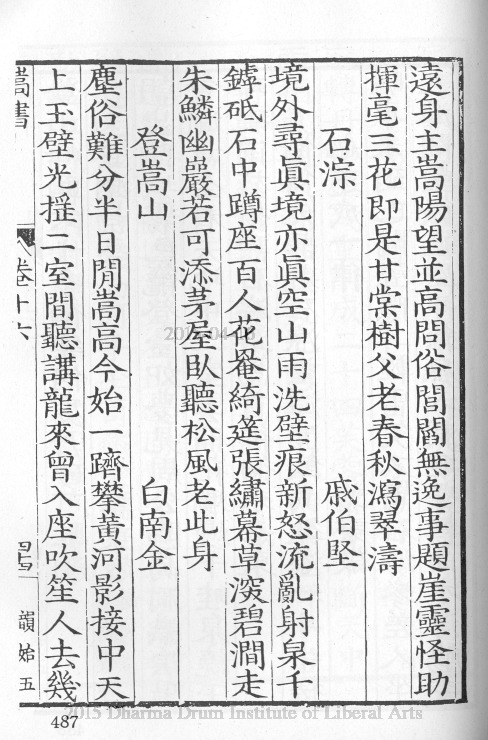 遠身主嵩陽望並高問俗閭閻無逸事題崖靈怪助
揮毫三花即是甘棠樹父老春秋瀉翠濤
石淙 戚伯堅
境外尋眞境亦眞空山雨洗壁痕新怒流亂射泉千
鏬砥石中蹲座百人花罨綺筵張繡幕草深碧澗走
朱鱗幽巖若可添茅屋臥聽松風老此身
登嵩山 白南金
塵俗難分半日閒嵩高今始一躋攀黃河影接中天
上玉壁光搖二室間聽講龍來曾入座吹笙人去幾
嵩書 卷十六 韻始五
487
2015 Dharma Drum Institute of Liberal Arts